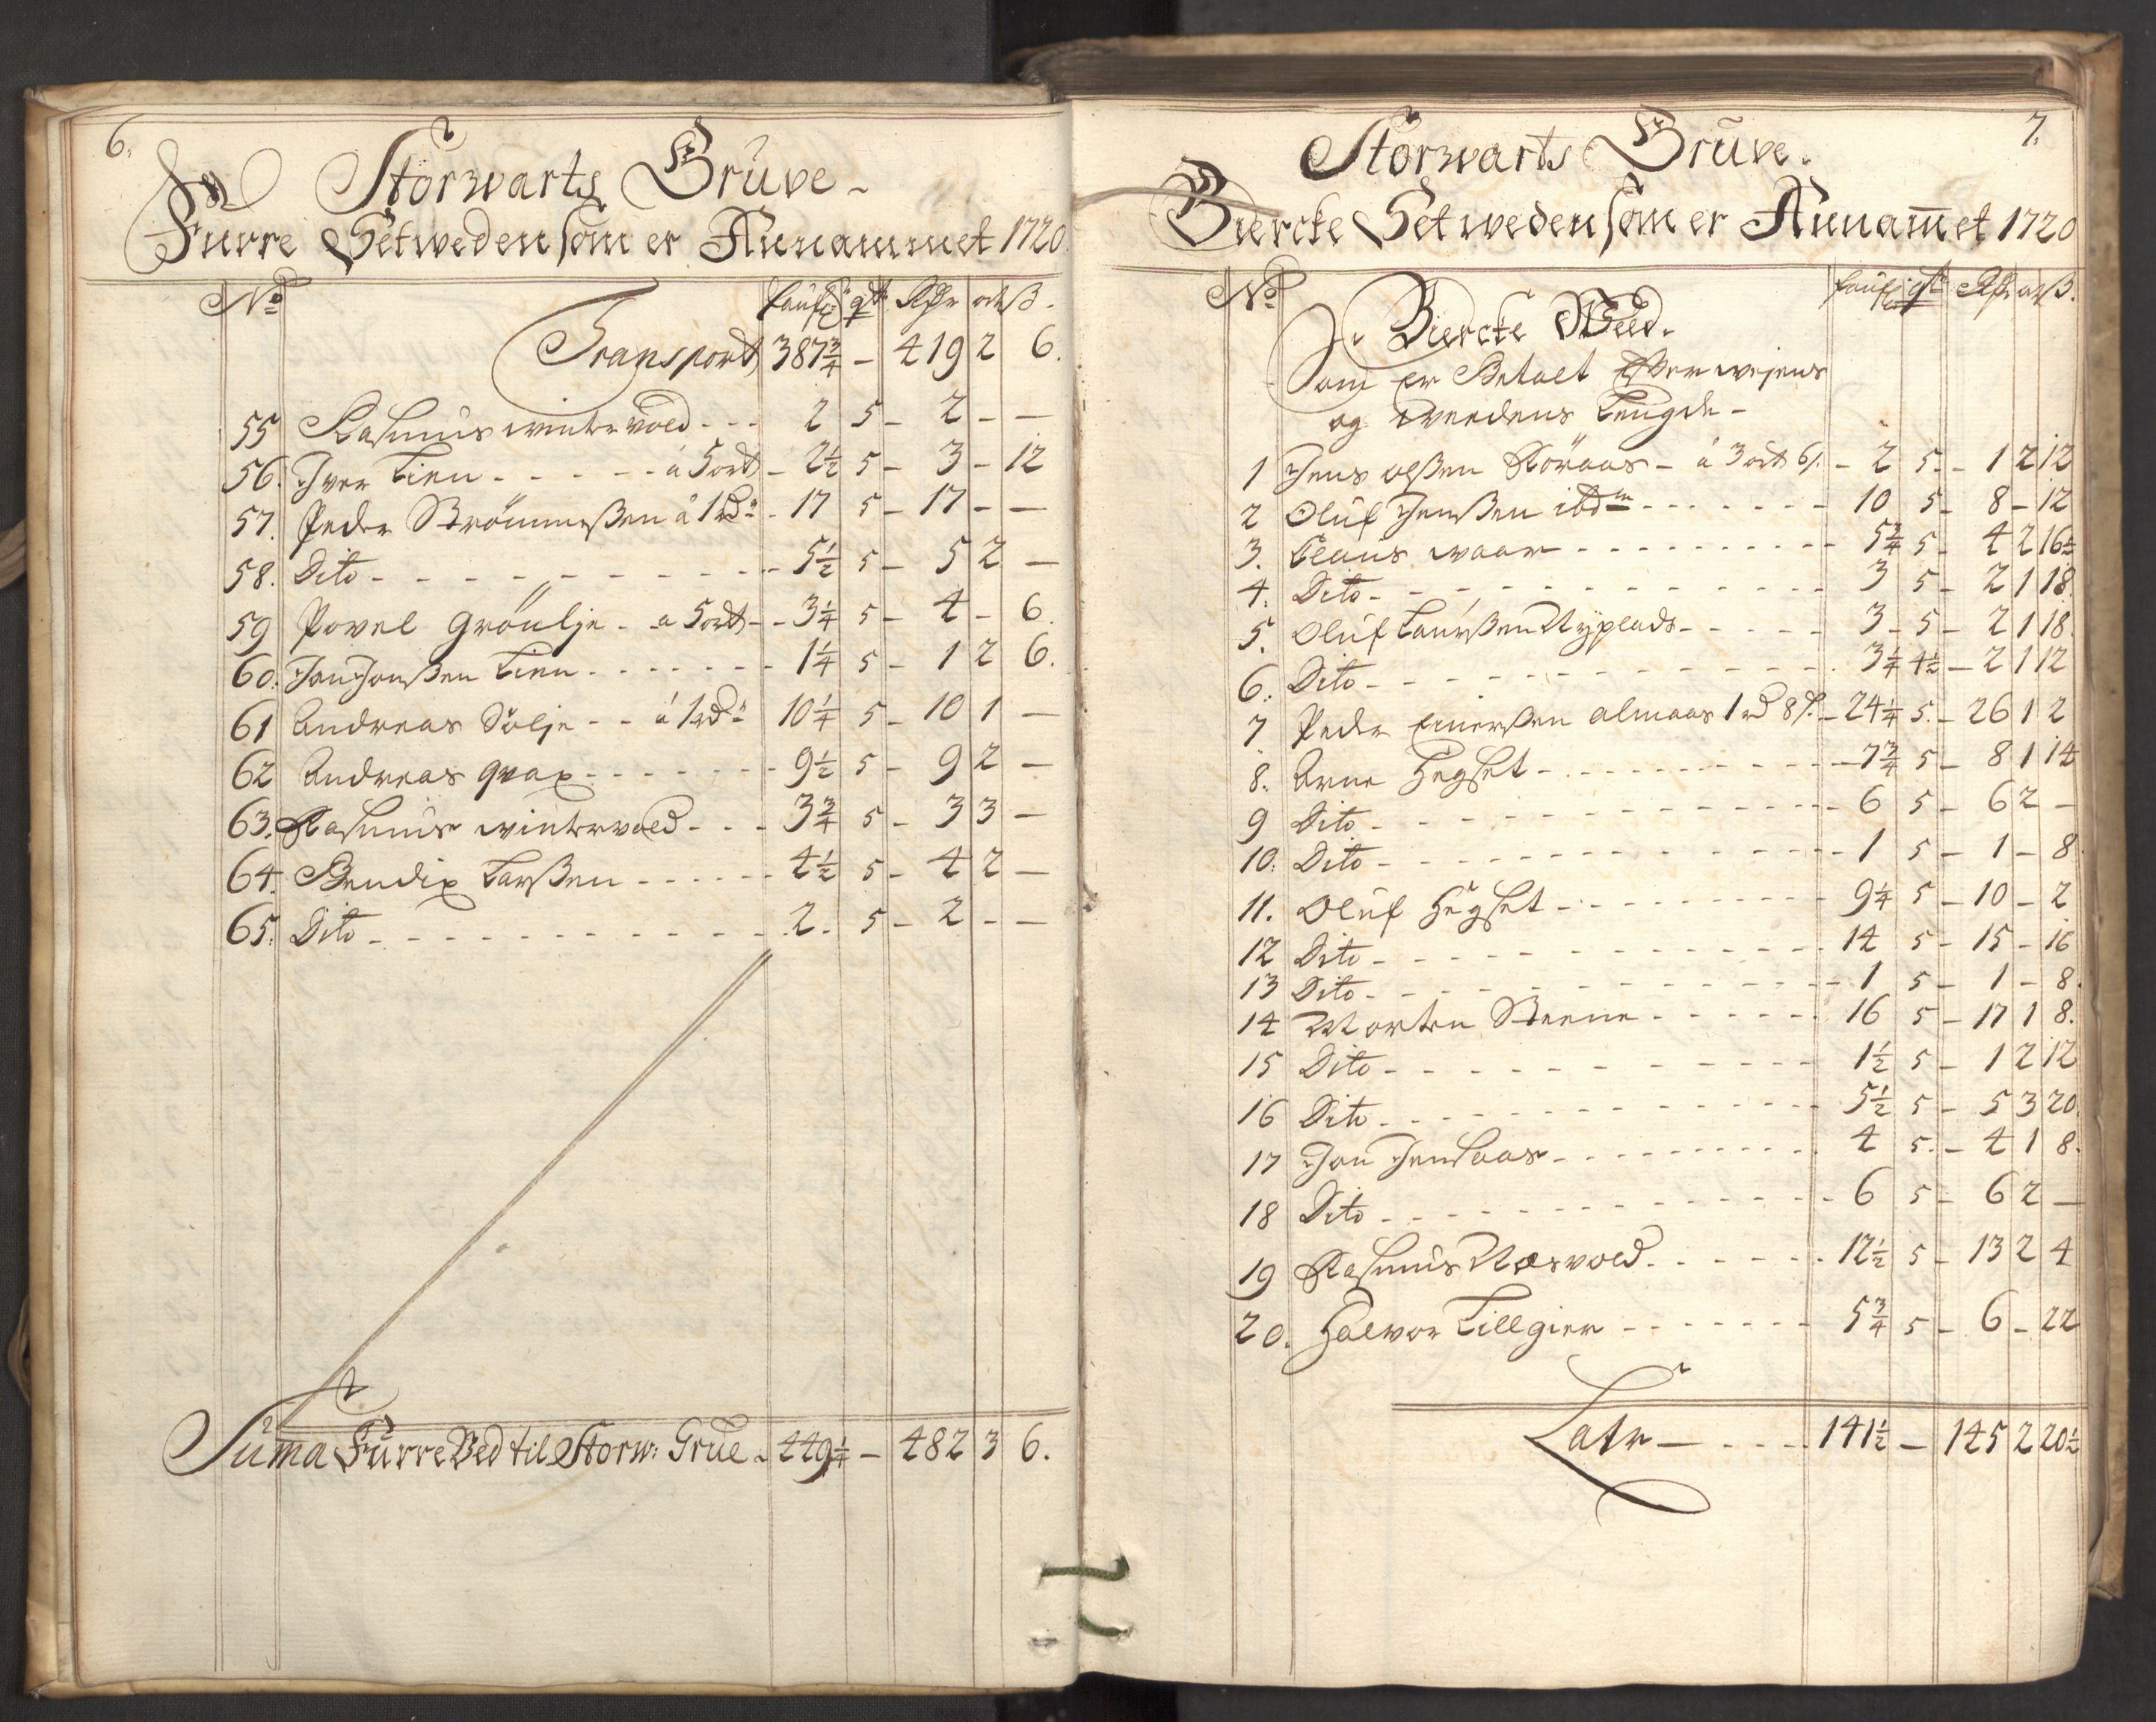 6.
Storwarts Grüve
Furre Setweden som er Annammet 1720.
No faufn qt Rdr ort ß.
Transport 387 3/4 - 419 2 6.
55 Rasmus wintervold - - - 2 5 - 2 - -
56. Iver Lien - - - - - à 5 ort - 2 1/2 5 - 3 - 12
57. Peder Strömmeßen à 1 rd - 17 5 - 17 - -
58. Dito - - - - - - - - 5 1/2 5 - 5 2 -
59 Povel Gröulje - à 5 ort - - 3 1/4 5 - 4 - 6.
60. Jon Jonßen Lien - - - - - - 1 1/4 5 - 1 2 6.
61 Andreas Sölje - - à 1 rd 10 1/4 5 - 10 1 -
62 Andreas Grax - - - - - - 9 1/2 5 - 9 2 -
63. Rasmus wintervold - - - 3 3/4 5 - 3 3 -
64. Bendix Larßen - - - - - 4 1/2 5 - 4 2 -
65. Dito - - - - - - - - - 2 - 5 - 2 - -
Suma Furre Ved til Storw: Grue - 449 1/4 - 482 3 6.
7.
Storwarts Grüve.
Biercke Setweden som er Annam̄et 1720
No faufn qt Rdr ort ß.
Biercke Weed.
Som er Betalt efter wejens
og weedens Lengde -
1 Jens olßen Röraas - à 3 ort 6 ß. - 2 5 - 1 2 12
2 Oluf Jenßen ibdm - - - - - - 10 5 - 8 - 12
3. Claus waar - - - - - - - - 5 3/4 5 - 4 2 16 1/2
4. Dito - - - - - - - - - - 3 5 - 2 1 18
5. Oluf Laurßen Nyplads - - - - - 3 - 5 - 2 1 18.
6. Dito - - - - - - - - - - 3 1/4 4 1/2 - 2 1 12
7 Peder Einerßen Almaas 1 rd 8 ß. - 24 1/4 5 - 26 1 2
8. Arne Hegset - - - - - - - - 7 3/4 5 - 8 1 14
9 Dito - - - - - - - - - - 6 5 - 6 2 -
10. Dito - - - - - - - - - - 1 5 - 1 - 8
11. Oluf Hegset - - - - - - - - 9 1/4 5 - 10 - 2
12 Dito - - - - - - - - - - 14 5 - 15 - 16
13 Dito - - - - - - - - - - 1 5 - 1 - 8.
14 Morten Steene - - - - - - 16 5 - 17 1 8.
15 Dito - - - - - - - - - - 1 1/2 5 - 1 2 12
16 Dito - - - - - - - - - - 5 1/2 5 - 5 3 20
17 Jon Jensaas - - - - - - - - 4 5 - 4 1 8.
18 Dito - - - - - - - - - - 6 5 - 6 2 -
19 Rasmus Næsvold - - - - - - 12 1/2 5 - 13 2 4
20. Halvor Lillgier - - - - - - 5 3/4 5 - 6 - 22
Latr - - - - 141 1/2 - 145 2 20 1/2